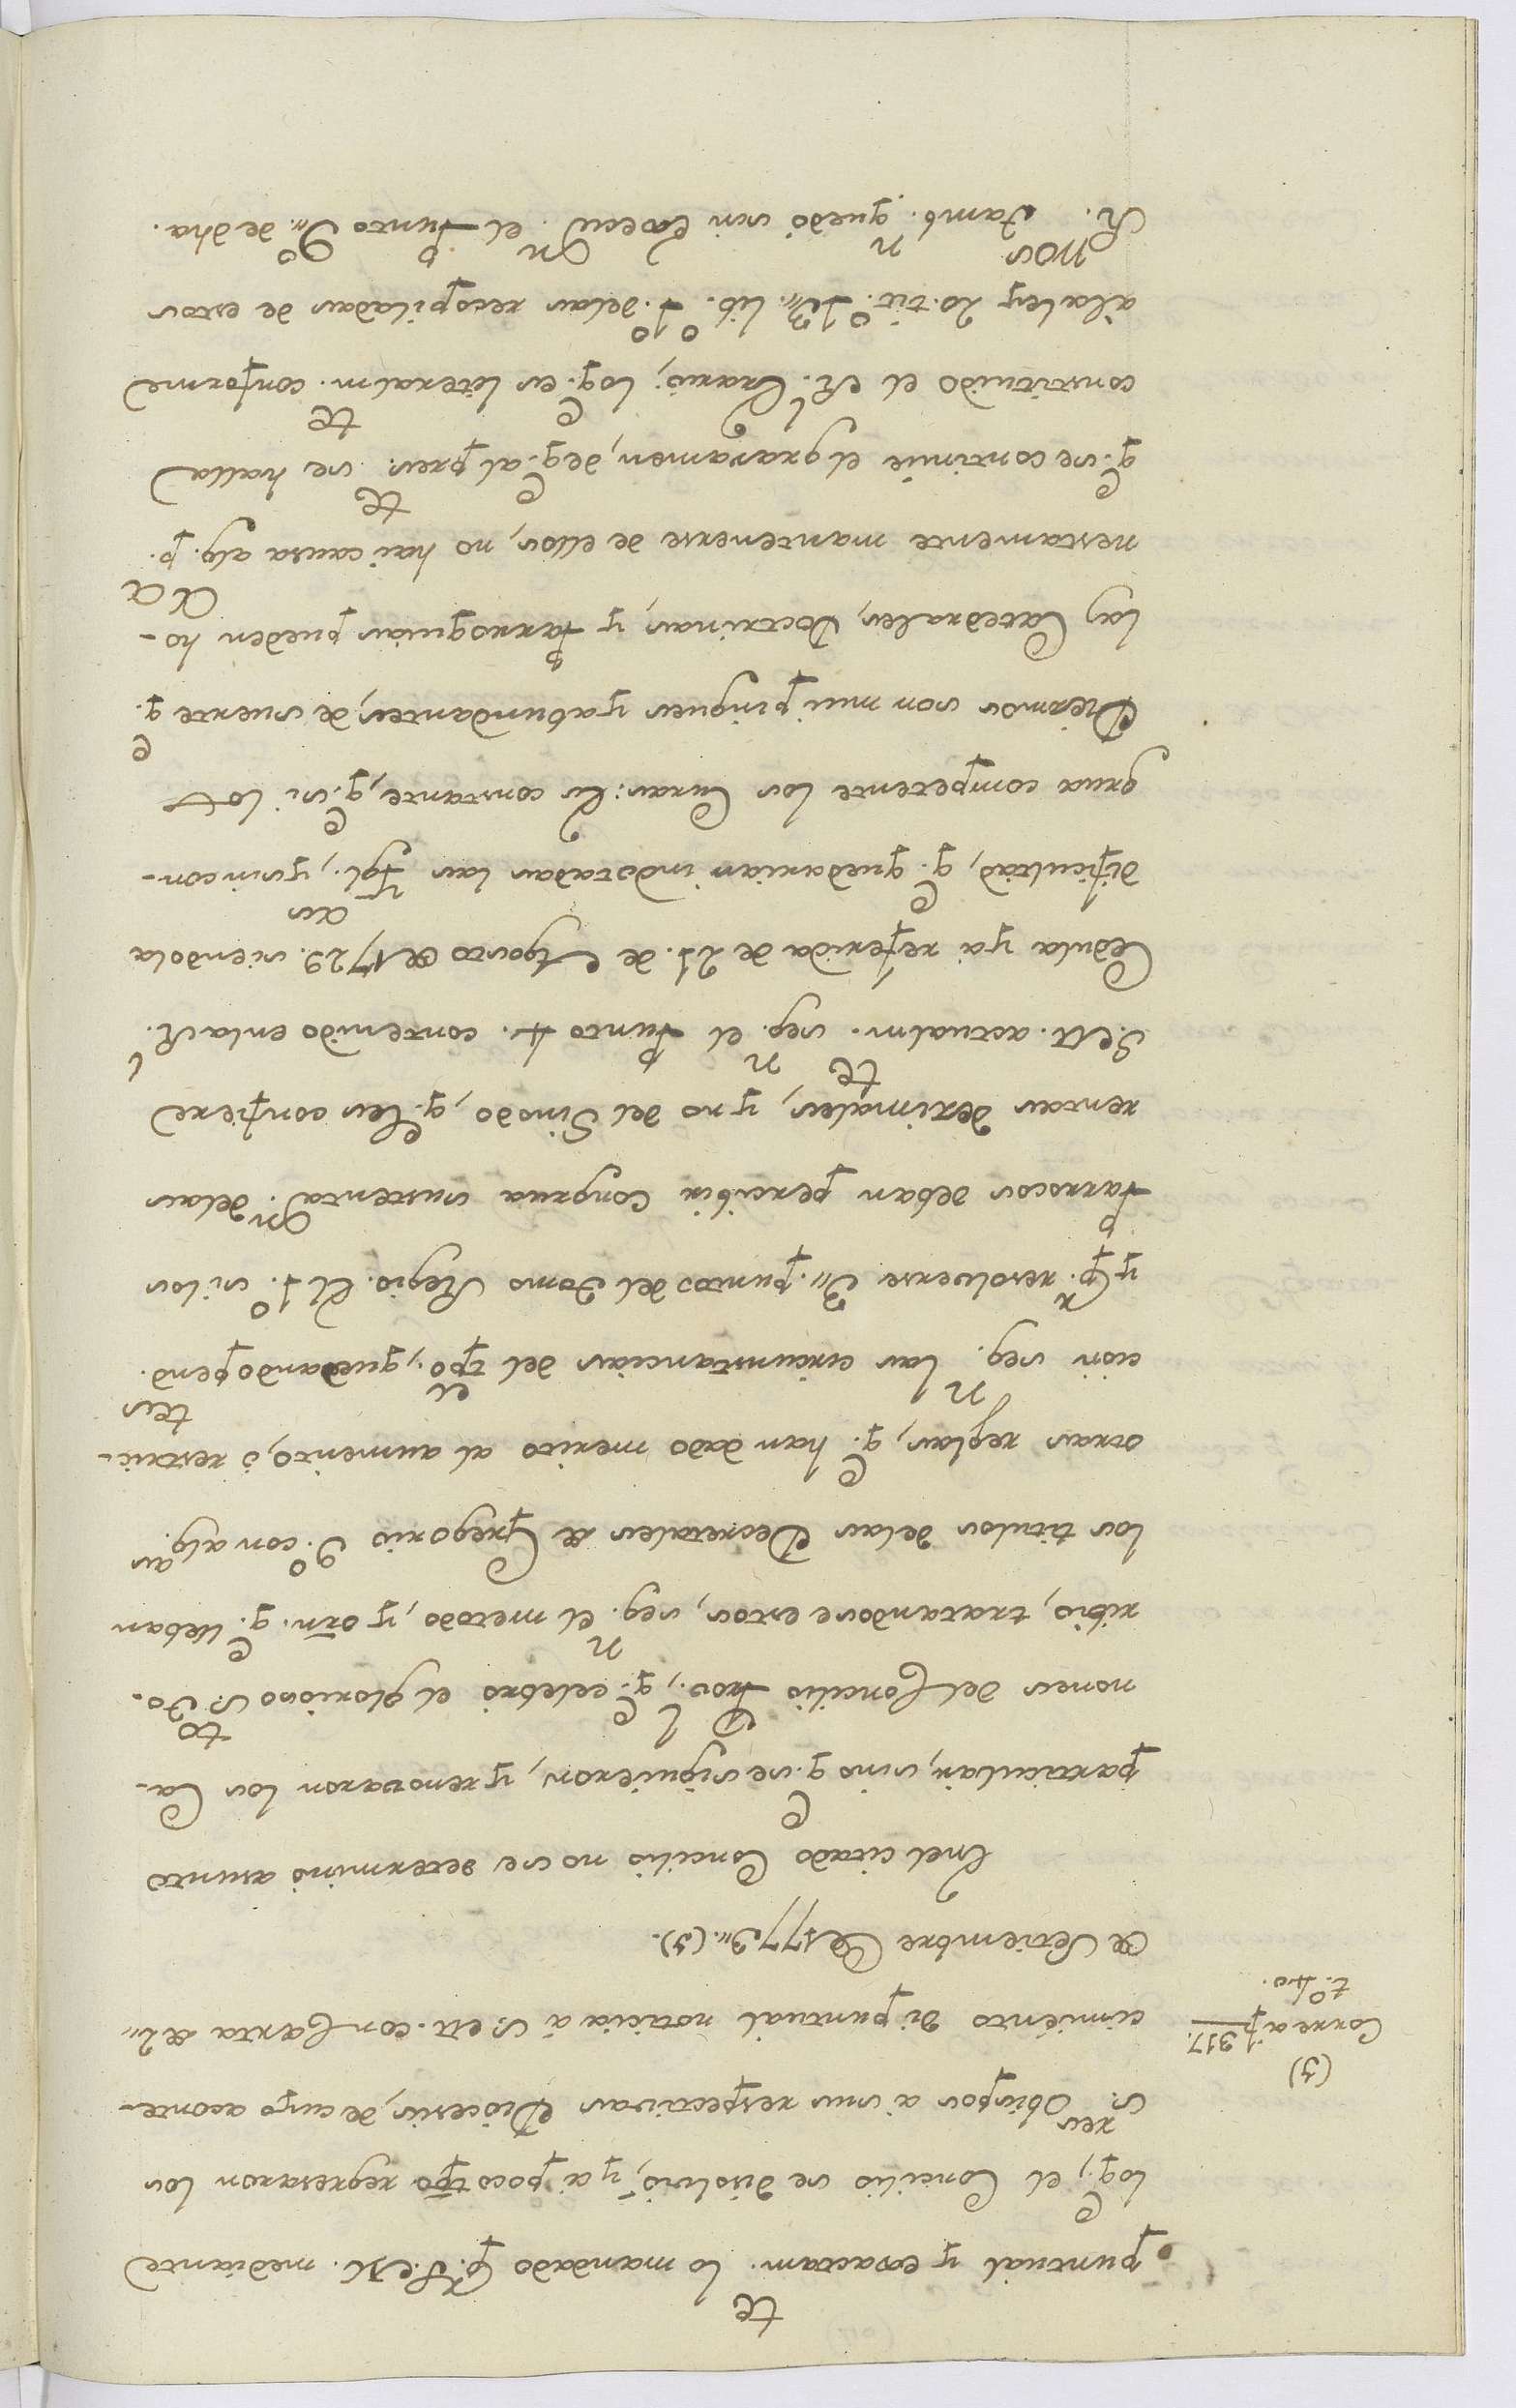 puntual y exactam.te lo mandado pr. S. M. mediante
loq.e, el Concilio se disolvió, y á poco tpo regresaron los
S.res Obispos á sus respectivas Diocesis, de cuyo aconte-
cimiento di puntual noticia á S. M. con Carta de 2,,
de Setiembre de 1773,, (3).
(3)
Corre a f 317.
t.o 40.
En el citado Concilio no se determinó asunto
particular, sino q.e se siguieron, y renovaron los Ca-
nones del Concilio Prov.l, q.e celebró el glorioso S.to To-
ribio, tratandose estos, seg.n el metodo, y orn. q.e lleban
los titulos delas Decretales de Gregorio 9.o con alg.as
otras reglas, q.e han dado merito al aumento, ó restric-
cion seg.n las circunstancias del tpo., quedando pend.tes
y pr. resolverse 3,, puntos del Tomo Regio. El 1.o si los
Parrocos deban percibir Congrua sustenta.on delas
rentas dezimales, y no del Sinodo, q.e les confiere
S. M. actualm.te seg.n el Punto 4. contenido enla R.l
Cedula ya referida de 21. de Agosto de 1729. siendola
dificultad, q.e quedarian indotadas las Ygl.as, y sin con-
grua competente los Curas: Es constante, q.e si los
Diezmos son mui pingues y abundantes, de suerte q.e
las Catedrales, Doctrinas, y Parroquias pueden ho-
nestamente mantenerse de ellos, no hai causa alg.a p.a
q.e se continúe el gravamen, de q.e al pres.te se halla
constituido el R.l Erario; loq.e es literalm.te conforme
ála ley 20. tit.o 13,, lib.o 1.o delas recopiladas de estos
R.nos Tamb.n quedó sin Execu.on el Punto 9.o,, de dha.